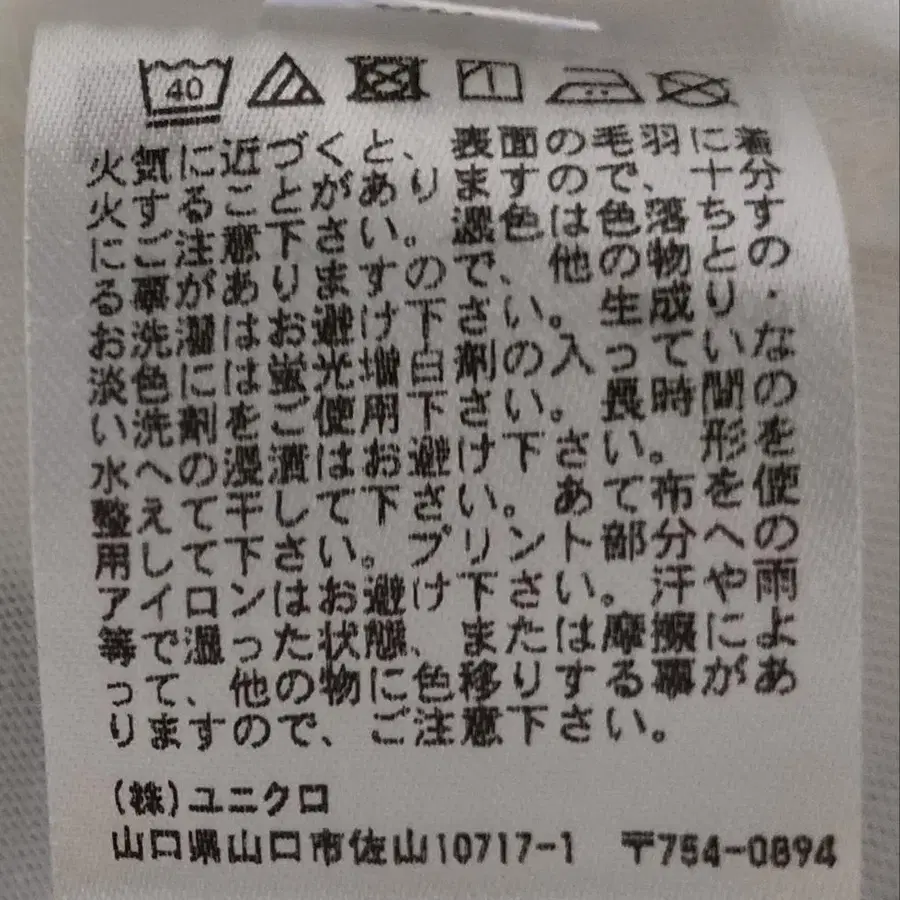 40
火気に近づくと、表面の毛羽に着
火することがありますので、十分
にご注意下さい。濃色は色落ちす
る事がありますので、他の物との
お洗濯はお避け下さい。生成り・
淡色には蛍光増白剤の入っていな
い洗剤をご使用下さい。長時間の
水への浸漬はお避け下さい。形を
整えて干して下さい。あて布を使
用して下さい。プリント部分への
アイロンはお避け下さい。汗や雨
等で湿った状態、または摩擦によ
って、他の物に色移りする事があ
りますので、ご注意下さい。
(株)ユニクロ
山口県山口市佐山10717-1 〒754-0894